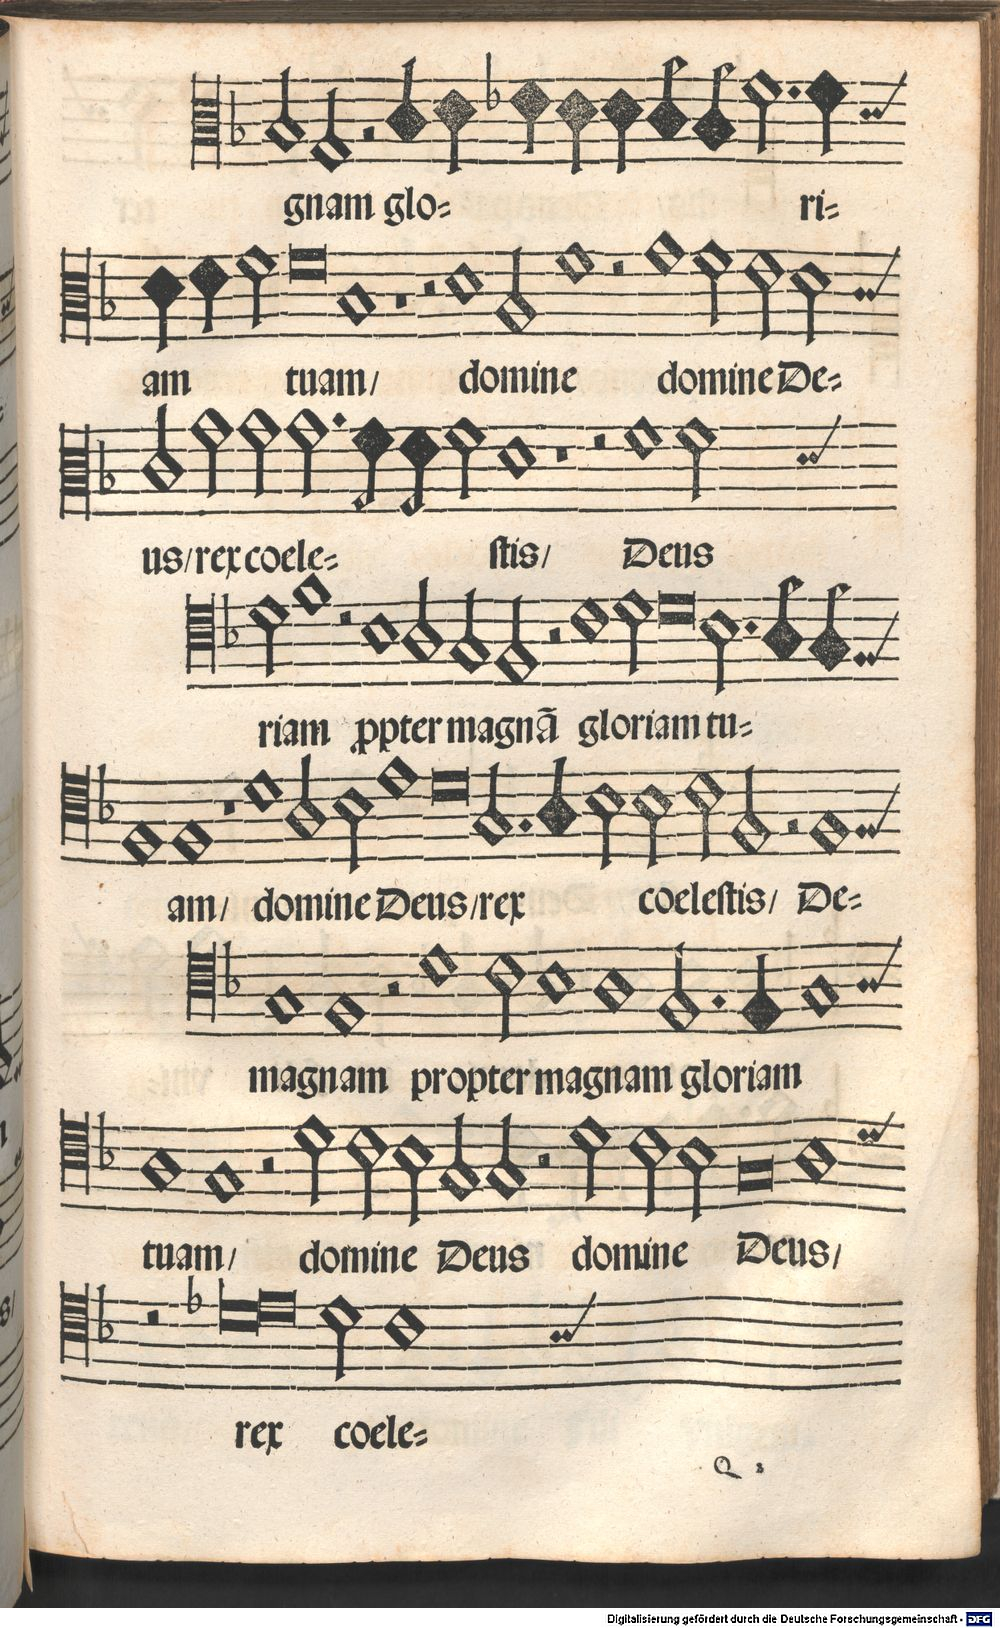 gnam glo= ri=
am tuam/ domine domine De=
us/rex coele= stis/ Deus
riam ꝓpter magnã gloriam tu=
am/ domine Deus/rex coelestis/ De=
magnam propter magnam gloriam
tuam/ domine Deus domine Deus/
rex coele=
Q 3
Digitalisierung gefördert durch die Deutsche Forschungsgemeinschaft - DFG